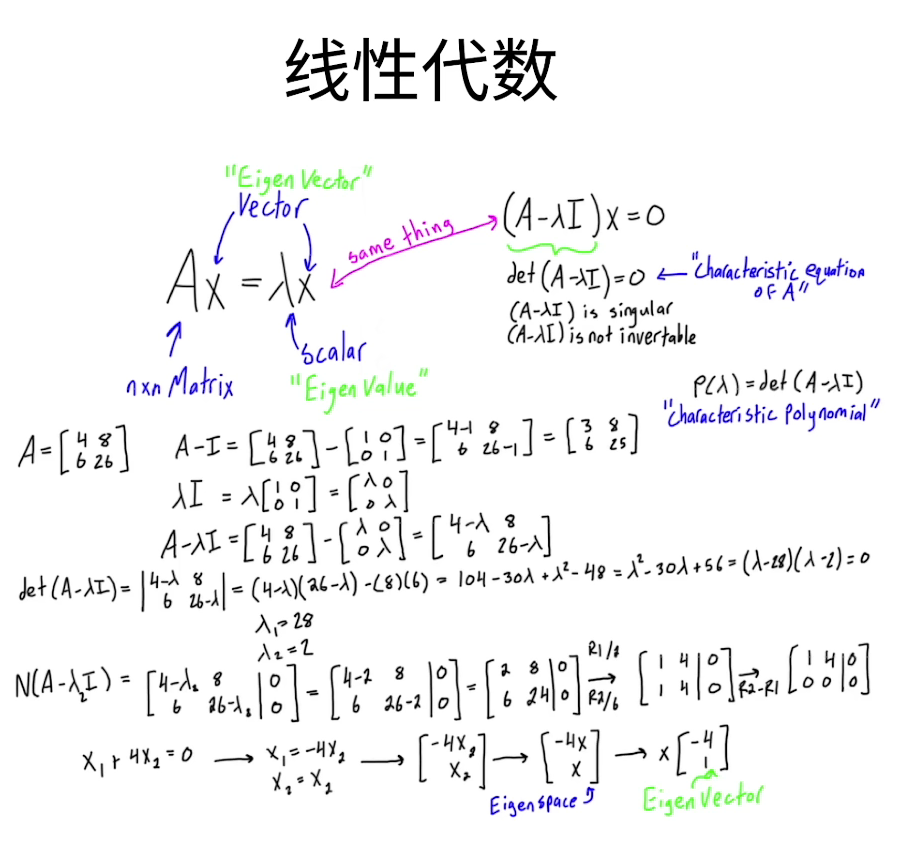 线性代数
"Eigen Vector"
Vector
Ax = λx
same thing
(A-λI)x=0
det(A-λI)=0 ← "Characteristic equation
OF A"
(A-λI) is singular
(A-λI) is not invertable
nxn Matrix
Scalar
"Eigen Value"
P(λ)=det(A-λI)
"Characteristic Polynomial"
A=[4 8; 6 26] A-I=[4 8; 6 26]-[1 0; 0 1]=[4-1 8; 6 26-1]=[3 8; 6 25]
λI = λ[1 0; 0 1]=[λ 0; 0 λ]
A-λI=[4 8; 6 26]-[λ 0; 0 λ]=[4-λ 8; 6 26-λ]
det(A-λI)=|4-λ 8; 6 26-λ|=(4-λ)(26-λ)-(8)(6) = 104-30λ+λ²-48=λ²-30λ+56=(λ-28)(λ-2)=0
λ₁=28
λ₂=2
N(A-λ₂I) = [4-λ₂ 8 | 0; 6 26-λ₂ | 0] = [4-2 8 | 0; 6 26-2 | 0] = [2 8 | 0; 6 24 | 0] R1/2 R2/6 → [1 4 | 0; 1 4 | 0] → R2-R1 [1 4 | 0; 0 0 | 0]
x₁+4x₂=0 → x₁=-4x₂ → [-4x₂; x₂] → [-4x; x] → x[-4; 1]
x₂=x₂
Eigenspace
Eigen Vector